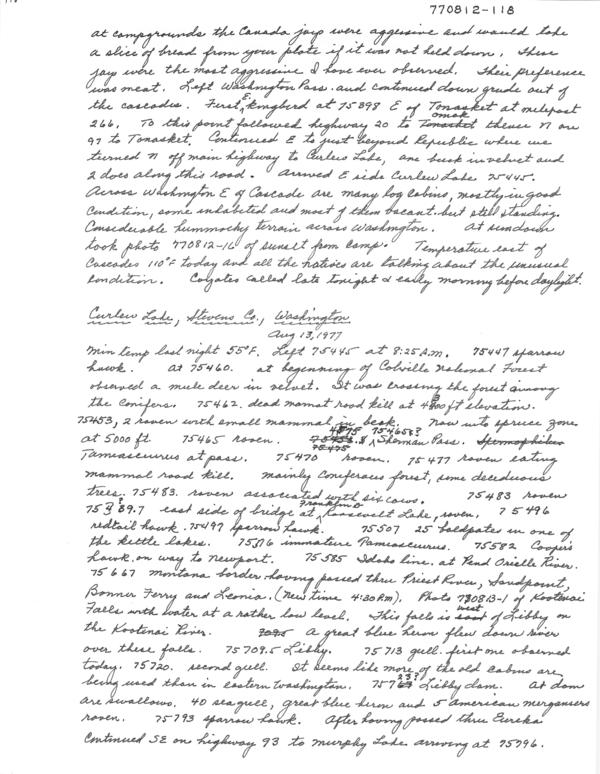 770812-118
at campgrounds the Canada jays were aggessive and would take
a slice of bread from your plate if it was not held down. These
jays were the most aggressive I have ever observed. Their preference
was meat. Left Washington Pass and continued down grade out of
the cascades. First E. kingbird at 75398 E of Tonasket at milepost
266. To this point followed highway 20 to Omak thence N on
97 to Tonasket. Continued E to just beyond Republic where we
turned N off main highway to Curlew Lake, one buck in velvet and
2 does along this road. Arrived E side Curlew Lake 75445.
Across Washington E of Cascade are many log cabins, mostly in good
condition, some inhabited and most of them vacant but still standing.
Considerable hummocky terrain across Washington. At sundown
took photo 770812-16 of sunset from camp. Temperature east of
Cascades 110°F today and all the natives are talking about the unusual
condition. Coyotes called late tonight & early morning before daylight.
Curlew Lake, Stevens Co., Washington
Aug 13, 1977
Min temp last night 55°F. Left 75445 at 8:25 A.M. 75447 sparrow
hawk. At 75460. at beginning of Colville National Forest
observed a mule deer in velvet. It was crossing the forest among
the conifers. 75462. dead marmot road kill at ft elevation.
75453, 2 raven with small mammal in beak. Now into spruce zone
at 5000 ft. 75465 raven. Sherman Pass.
Tamiasciurus at pass. 75470 raven. 75477 raven eating
mammal road kill. Mainly coniferous forest, some deciduous
trees. 75483. raven associated with six cows. 75483 raven
east side of bridge at Franklin D Roosevelt Lake, raven, 75496
redtail hawk. 75497 sparrow hawk. 75507 25 baldpates in one of
the kettle lakes. 75516 immature Tamiasciurus. 75582 Cooper's
hawk on way to Newport. 75585 Idaho line. at Pend Orielle River.
75667 Montana border having passed thru Priest River, Sandpoint,
Bonner Ferry and Leonia. (New time 4:30 P.M). Photo 770813-1 of Kootenai
Falls with water at a rather low level. This falls is west of Libby on
the Kootenai River. A great blue heron flew down river
over these falls. 75709.5 Libby. 75713 gull. first one observed
today. 75720. second gull. It seems like more of the old cabins are
being used than in eastern Washington. Libby dam. At dam
are swallows. 40 sea gull, great blue heron and 5 American mergansers
raven. 75793 sparrow hawk. After having passed thru Eureka
Continued SE on highway 93 to Murphy Lake arriving at 75796.